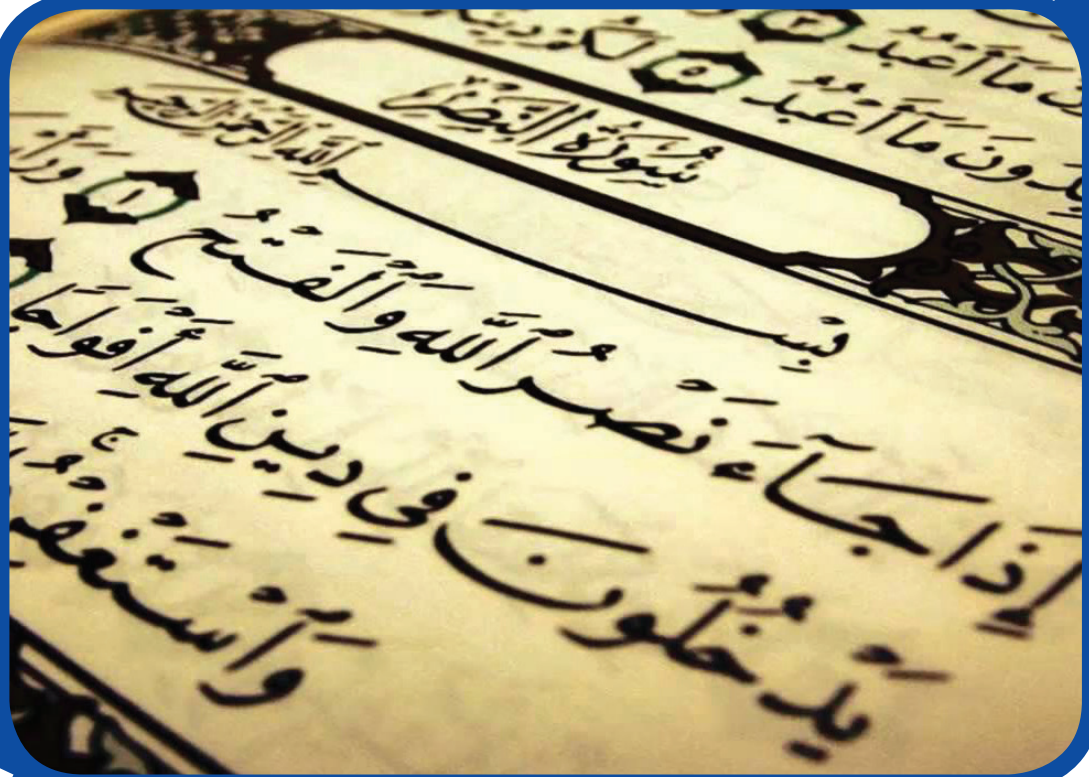 مَآ أَعْبُدُ ٣
مَآ أَعْبُدُ ٥ لَكُمْ
سُورَةُ النَّصْرِ
بِسْمِ ٱللَّهِ ٱلرَّحْمَٰنِ ٱلرَّحِيمِ
إِذَا جَآءَ نَصْرُ ٱللَّهِ وَٱلْفَتْحُ ١
يَدْخُلُونَ فِى دِينِ ٱللَّهِ أَفْوَاجًا